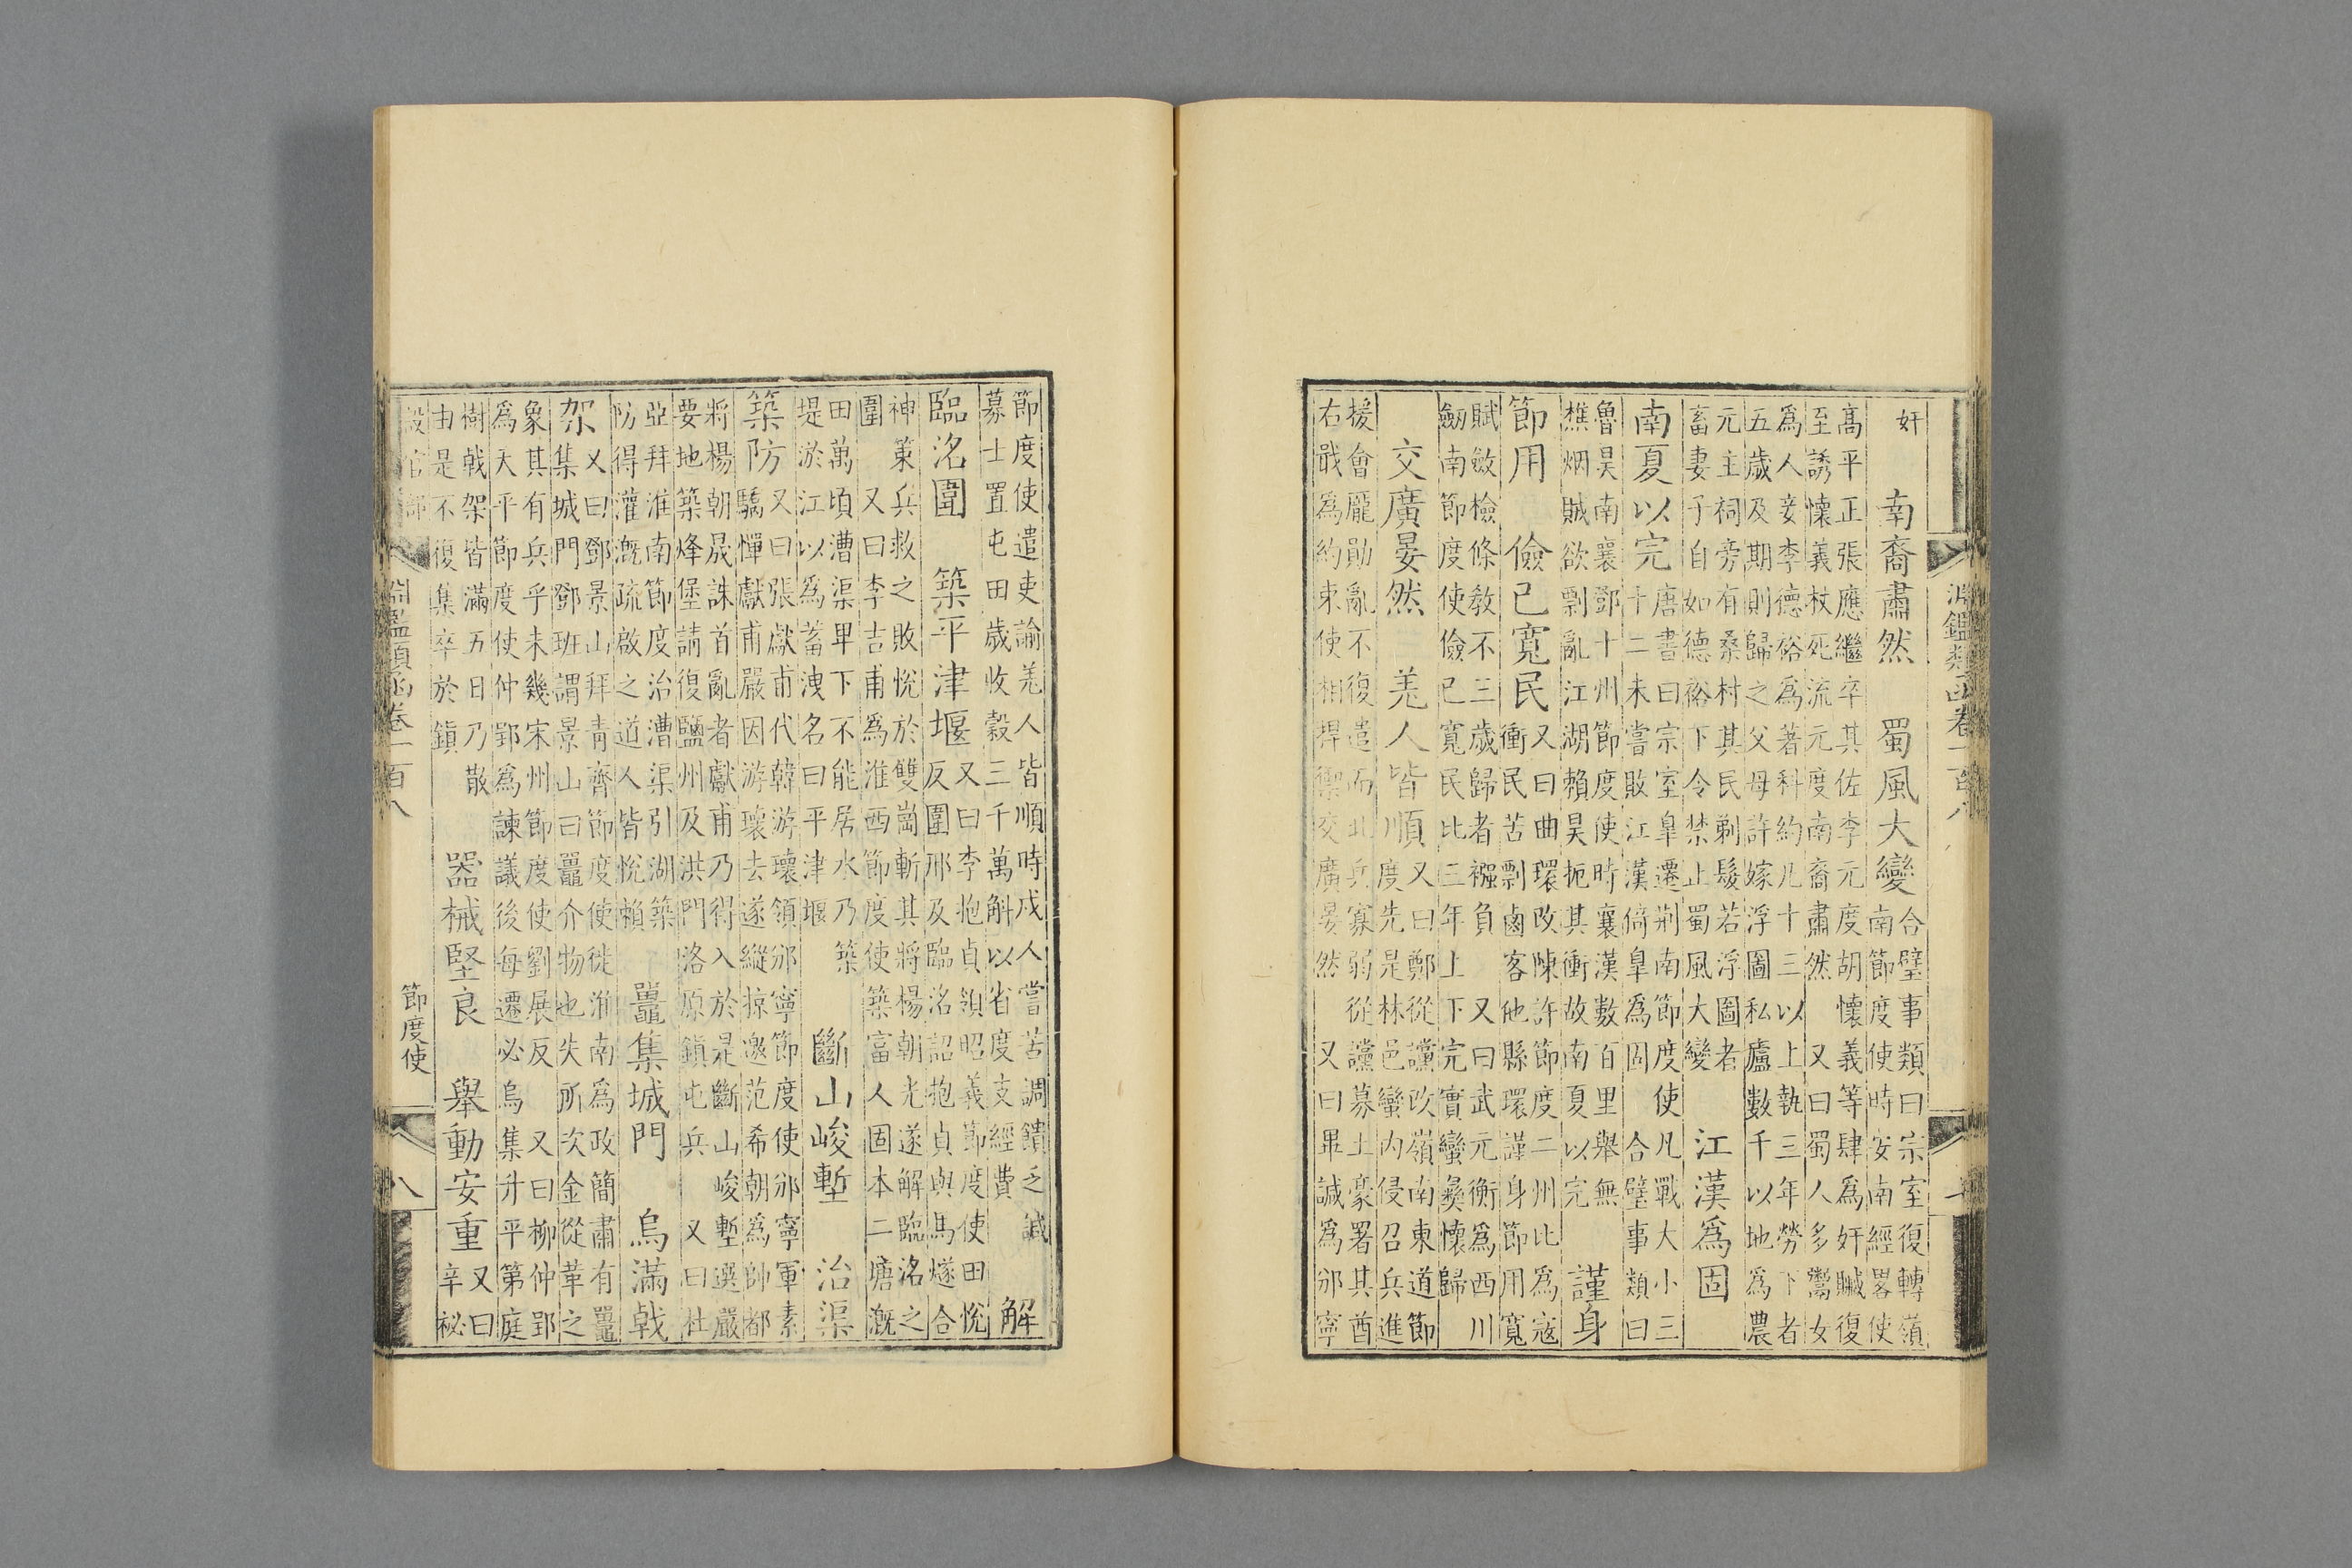 淵鑑類函卷一百八
奸
南裔肅然　蜀風大變
合璧事類曰宗室復轉嶺
南節度使時安南經畧使
高平正張應繼卒其佐李元度胡懷義等肆為奸贓復
至誘懷義杖死流元度南裔肅然　又曰蜀人多鬻女
為人妾李德裕為著科約凡十三以上執三年勞下者
五歲及期則歸之父母許嫁浮圖私廬數千以地為農
元主祠旁有桑村其民剃髮若浮圖者
畜妻子自如德裕下令禁止蜀風大變
江漢為固
南夏以完
唐書曰宗室皐遷荆南節度使　凡戰大小三
十二未嘗敗江漢倚皐為固　合璧事類曰
魯昊南襄鄧十州節度使時襄漢數百里舉無
樵烟賊欲剽亂江湖賴昊扼其衝故南夏以完
謹身
節用　儉已寬民
又曰曲環改陳許節度二州比為寇
衝民苦剽鹵客他縣環謹身節用寬
賦斂檢條教不三歲歸者襁負　又曰武元衡為西川
劒南節度使儉已寬民比三年上下完實蠻彝懷歸
交廣晏然　羌人皆順
又曰鄭從讜改嶺南東道節
度先是林邑蠻內侵召兵進
援會龎勛亂不復遣而北兵寡弱從讜募土豪署其酋
右戢為約束使相捍禦交廣晏然　又曰畢諴為邠寧
節度使遣吏諭羌人皆順時戍人嘗苦調饋乏諴
募士置屯田歲收穀三千萬斛以省度支經費
解
臨洺圍　築平津堰
又曰李抱貞領昭義節度使田悅
反圍邢及臨洺詔抱貞與馬燧合
神策兵救之敗悅於雙崗斬其將楊朝光遂解臨洺之
圍　又曰李吉甫為淮西節度使築富人固本二塘溉
田萬頃漕渠卑下不能居水乃築
堤淤江以為蓄洩名曰平津堰
斷山峻塹　治渠
築防
又曰張獻甫代韓游瓌領邠寧節度使邠寧軍素
驕憚獻甫嚴因游瓌去遂縱掠邀范希朝為帥都
將楊朝晟誅首亂者獻甫乃得入於是斷山峻塹選嚴
要地築烽堡請復鹽州及洪門洛原鎮屯兵　又曰杜
亞拜淮南節度治漕渠引湖築
防得灌溉疏啟之道人皆悅賴
鼉集城門　烏滿戟
架
又曰鄧景山拜青齊節度使徙淮南為政簡肅有鼉
集城門鄧班謂景山曰鼉介物也失所次金從革之
象其有兵乎未幾宋州節度使劉展反　又曰柳仲郢
為天平節度使仲郢為諫議後每遷必烏集升平第庭
樹戟架皆滿五日乃散
由是不復集卒於鎮
器械堅良　舉動安重
又曰
辛祕
設官部
淵鑑類函卷一百八
節度使
八